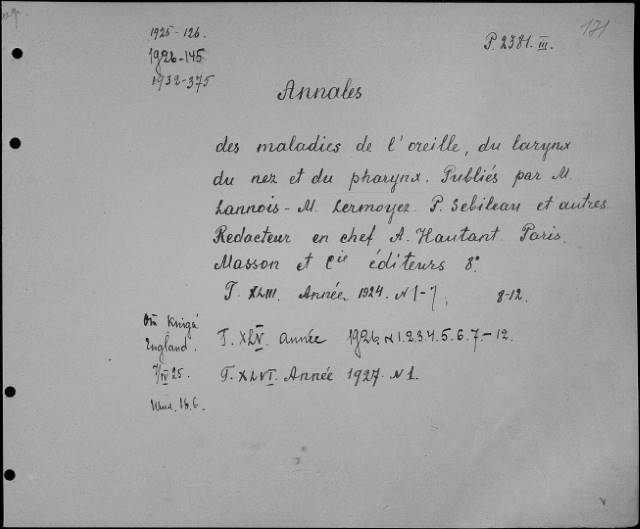 1925-126.
1926-145
1932-375
P. 2381. III.
171
Annales
des maladies de l'oreille, du larynx
du nez et du pharynx. Publiés par M.
Lannois - M. Lermoyez. P. Sebileau et autres.
Redacteur en chef A. Hautant Paris.
Masson et Cie éditeurs 8°
T. XLIII. Année 1924. N 1-7, 8-12.
T. XLV. année 1926. N 1.2.3.4.5.6.7.-12.
England.
7/IV 25.
T. XLVI. Année 1927. N 1.
16.6.